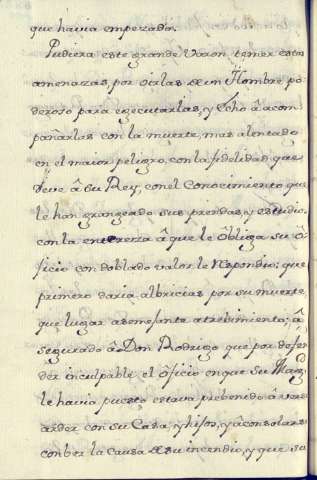 que havia empezado.
Pudiera este grande Varon temer estas
amenazas por oirlas de un Hombre po-
deroso para executarlas, y hecho â acom
pañarlas con la muerte, mas alentado
en el maior peligro, con la fidelidad que
deve â su Rey, con el Conocimiento que
le han grangeado sus prendas, y estudio,
con la entereza â que le obliga su ô-
ficio con doblado valor le respondio: que
primero daria albricias por su muerte,
que lugar a semejante atrebimiento; â
segurado â Don Rodrigo que por defen
der inculpable el oficio en que su Magd
le havia puesto estava prebenido â vers
arder con su Casa, y hijos, y â consolarse
con ber la causa de su incendio, y que su